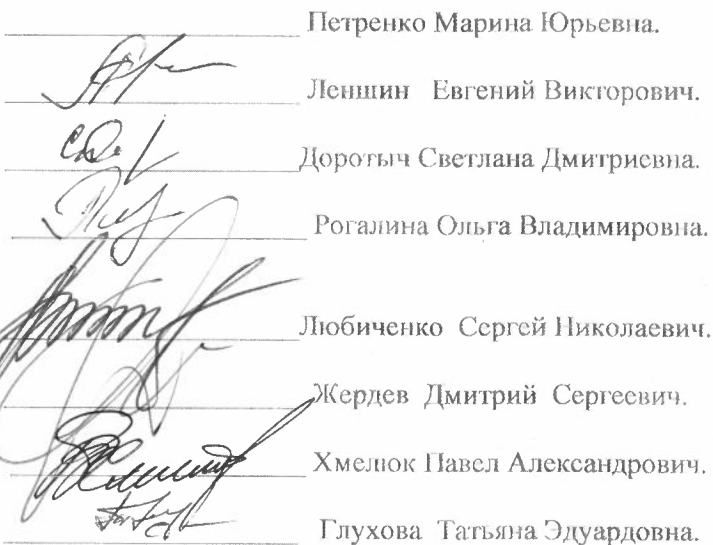 Петренко Марина Юрьевна.
Леншин Евгений Викторович.
Доротыч Светлана Дмитриевна.
Рогалина Ольга Владимировна.
Любиченко Сергей Николаевич.
Жердев Дмитрий Сергеевич.
Хмелюк Павел Александрович.
Глухова Татьяна Эдуардовна.